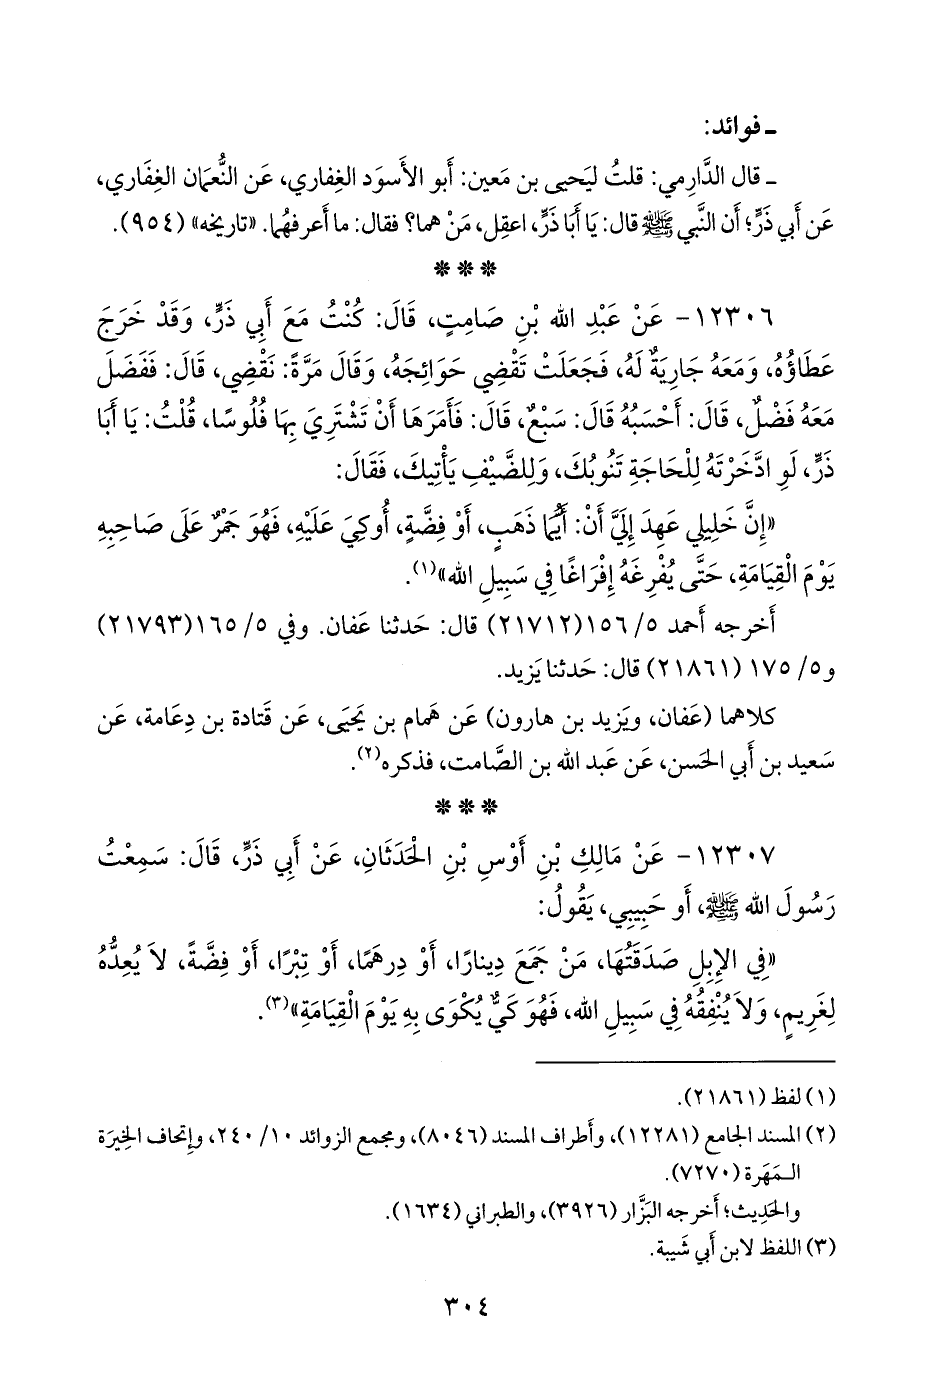 ـ فوائد:
ـ قال الدَّارِمي: قلتُ ليَحيى بن مَعين: أَبو الأَسوَد الغِفاري، عَن النُّعمَان الغِفَاري،
عَن أَبي ذَرٍّ؛ أَن النَّبي ﷺ قال: يَا أَبَا ذَرٍّ، اعقِل، مَنْ هما؟ فقال: ما أَعرفهُما. «تاريخه» (٩٥٤).
* * *
١٢٣٠٦- عَنْ عَبْدِ الله بْنِ صَامِتٍ، قَالَ: كُنْتُ مَعَ أَبِي ذَرٍّ، وَقَدْ خَرَجَ
عَطَاؤُهُ، وَمَعَهُ جَارِيَةٌ لَهُ، فَجَعَلَتْ تَقْضِي حَوَائِجَهُ، وَقَالَ مَرَّةً: نَقْضِي، قَالَ: فَفَضَلَ
مَعَهُ فَضْلٌ، قَالَ: أَحْسَبُهُ قَالَ: سَبْعٌ، قَالَ: فَأَمَرَهَا أَنْ تَشْتَرِيَ بِهَا فُلُوسًا، قُلْتُ: يَا أَبَا
ذَرٍّ، لَوِ ادَّخَرْتَهُ لِلْحَاجَةِ تَنُوبُكَ، وَلِلضَّيْفِ يَأْتِيكَ، فَقَالَ:
«إِنَّ خَلِيلِي عَهِدَ إِلَيَّ أَنْ: أَيُّمَا ذَهَبٍ، أَوْ فِضَّةٍ، أُوكِيَ عَلَيْهِ، فَهُوَ جَمْرٌ عَلَى صَاحِبِهِ
يَوْمَ الْقِيَامَةِ، حَتَّى يُفْرِغَهُ إِفْرَاغًا فِي سَبِيلِ الله»(١).
أَخرجه أَحمد ٥/ ١٥٦(٢١٧١٢) قال: حَدثنا عَفان. وفي ٥/ ١٦٥(٢١٧٩٣)
و٥/ ١٧٥ (٢١٨٦١) قال: حَدثنا يَزيد.
كلاهما (عَفان، ويَزيد بن هارون) عَن هَمام بن يَحيَى، عَن قَتادة بن دِعَامة، عَن
سَعيد بن أَبي الحَسن، عَن عَبد الله بن الصَّامت، فذكره(٢).
* * *
١٢٣٠٧- عَنْ مَالِكِ بْنِ أَوْسِ بْنِ الْحَدَثَانِ، عَنْ أَبِي ذَرٍّ، قَالَ: سَمِعْتُ
رَسُولَ الله ﷺ، أَو حَبِيبِي، يَقُولُ:
«فِي الإِبِلِ صَدَقَتُهَا، مَنْ جَمَعَ دِينارًا، أَوْ دِرهَمًا، أَوْ تِبْرًا، أَوْ فِضَّةً، لاَ يُعِدُّهُ
لِغَرِيمٍ، وَلاَ يُنْفِقُهُ فِي سَبِيلِ الله، فَهُوَ كَيٌّ يُكْوَى بِهِ يَوْمَ الْقِيَامَةِ»(٣).
(١) لفظ (٢١٨٦١).
(٢) المسند الجامع (١٢٢٨١)، وأَطراف المسند (٨٠٤٦)، ومجمع الزوائد ١٠/ ٢٤٠، وإِتحاف الخِيرَة
الـمَهَرة (٧٢٧٠).
والحَدِيث؛ أَخرجه البَزَّار (٣٩٢٦)، والطبراني (١٦٣٤).
(٣) اللفظ لابن أَبي شَيبة.
٣٠٤